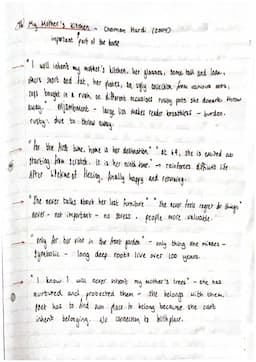 My Mother's Kitchen - Choman Hardi (2004)
important part of the home
"I will inherit my mother's kitchen, her glasses, some tall and lean,
others short and fat, her plates, an ugly collection from various sets,
cups bought in a rush on different occasions rusty pots she doesn't throw
away." enjambment - large list makes reader breathless - burden.
rusty: due to throw away.
"For the first time home is her destination." "at 69, she is excited about
starting from scratch. It is her ninth time." → reinforces difficult life
After lifetime of fleeing, finally happy and returning.
"She never talks about her lost furniture" "she never feels regret for things"
never - not important - no stress. people more valuable.
"only for her vine in the front garden" - only thing she misses -
symbolic - long deep roots live over 100 years.
"I know I will never inherit my mother's trees" - she has
nurtured and protected them - she belongs with them.
poet has to find own place to belong because she can't
inherit belonging. No connection to birthplace.